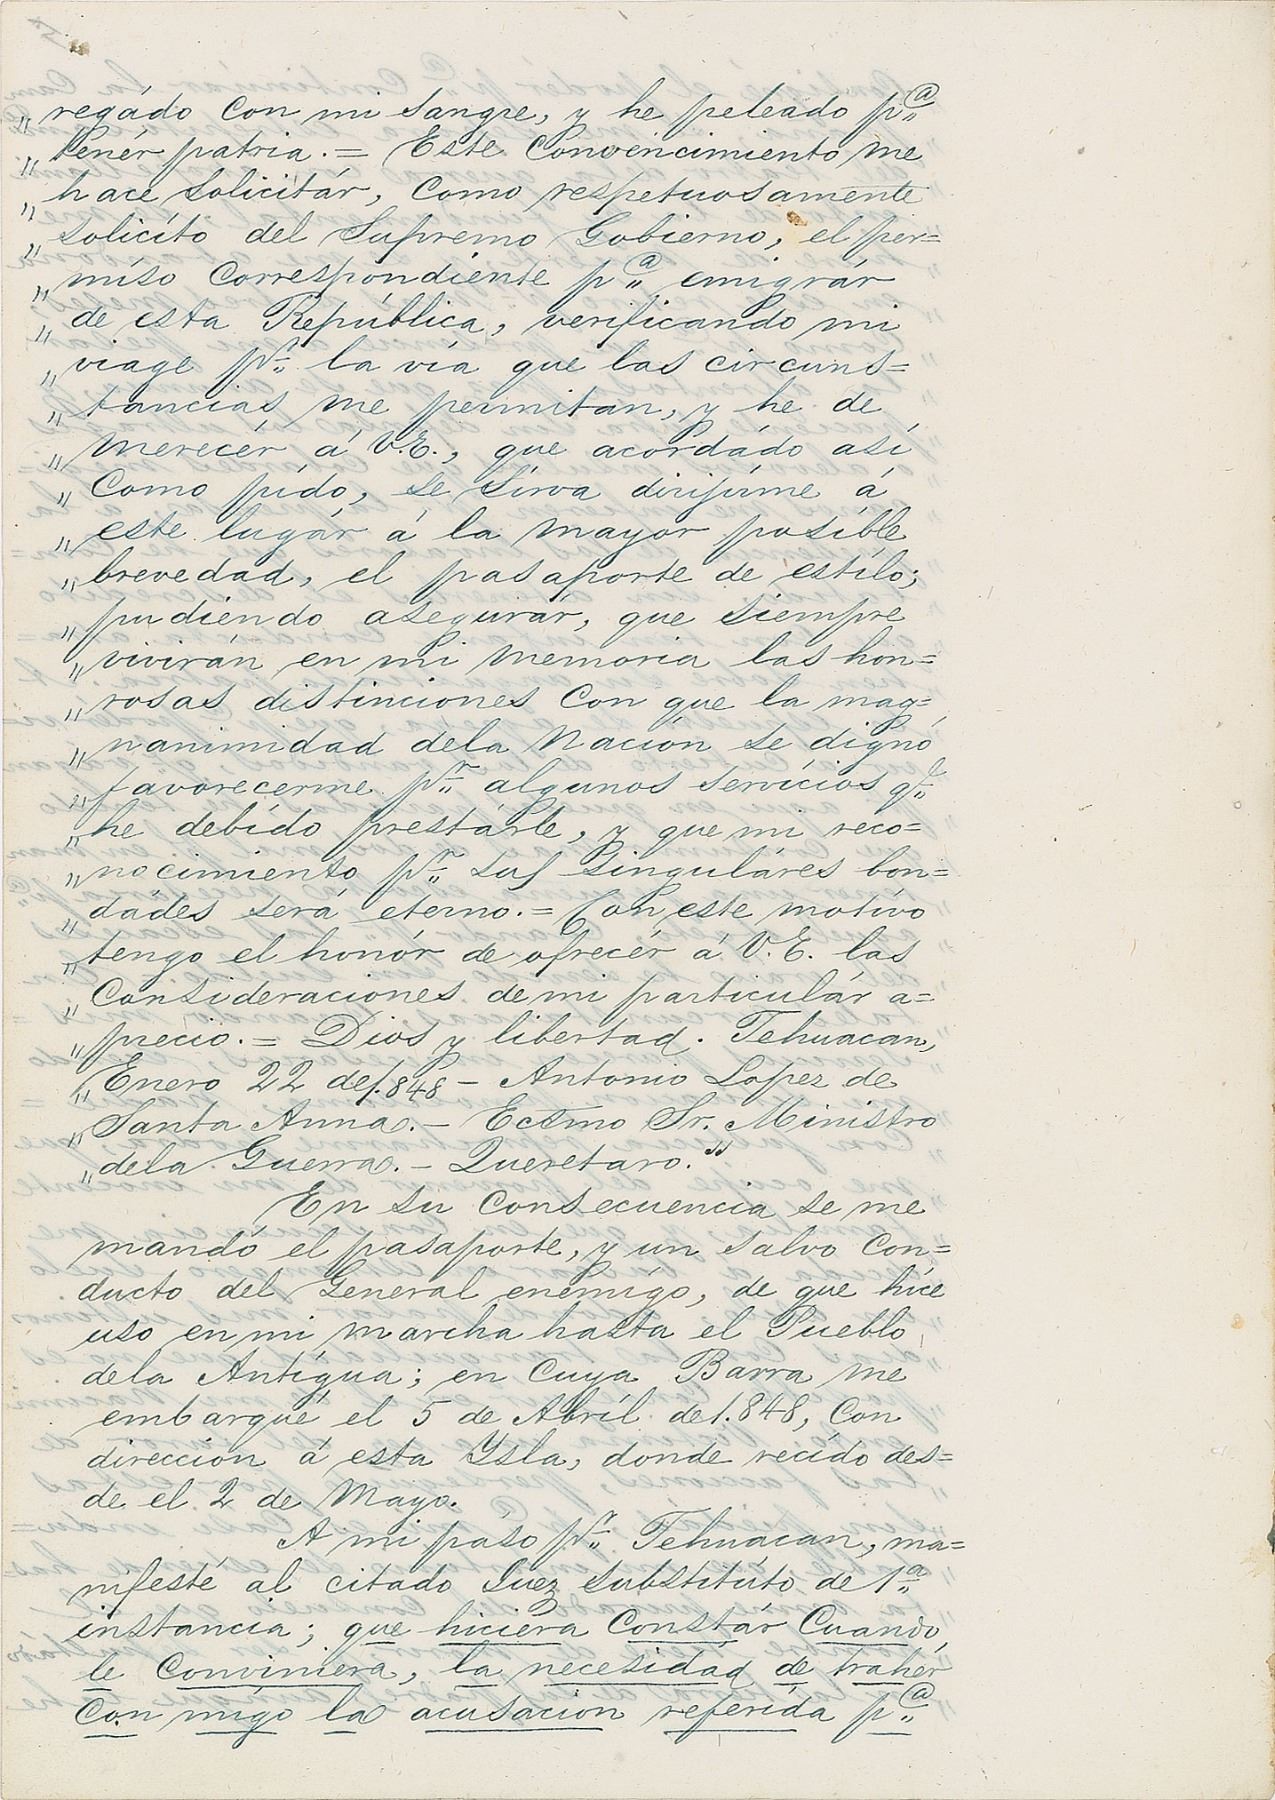 „ regádo con mi sangre, y he peleado p.ª
„ tenér patria.= Este convencimiento me
„ hace solicitár, como respetuosamente
„ solicíto del Supremo Gobierno, el per=
„ míso correspondiente p.ª emigrár
„ de esta República, verificando mi
„ viage p.r la vía que las circuns=
„ tancias me permitan, y he de
„ merecér á V.E., que acordádo así
„ como pído, se sírva dirijírme á
„ este lugár á la mayor posíble
„ brevedad, el pasaporte de estílo;
„ pudiendo asegurár, que siempre
„ vivirán en mi memoria las hon=
„ rosas distinciones con que la mag=
„ nanimidad dela Nación se dignó
„ favorecerme p.r algunos servícios q.e
„ he debído prestárle, y que mi reco=
„ nocimiento p.r sus singuláres bon=
„ dádes será eterno.= Con este motívo
„ tengo el honór de ofrecér á V.E. las
„ consideraciones de mi particulár a=
„ precio.= Dios y libertad. Tehuacan,
„ Enero 22 de 1.848 – Antonio Lopez de
„ Santa Anna.– Ecsmo Sr. Ministro
„ dela Guerra.– Queretaro."
En su consecuencia se me
mandó el pasaporte, y un salvo con=
ducto del General enemígo, de que híce
uso en mi marcha hasta el Pueblo
dela Antígua; en cuya Barra me
embarqué el 5 de Abríl de 1.848, con
dirección á esta Ysla, donde recído des=
de el 2 de Mayo.
A mi páso p.r Tehuacan, ma=
nifesté al citado Juez substitúto de 1.ª
instancia; que hiciera constár cuando
le conviniera, la necesidad de trahér
con mígo la acusacion referída p.ª